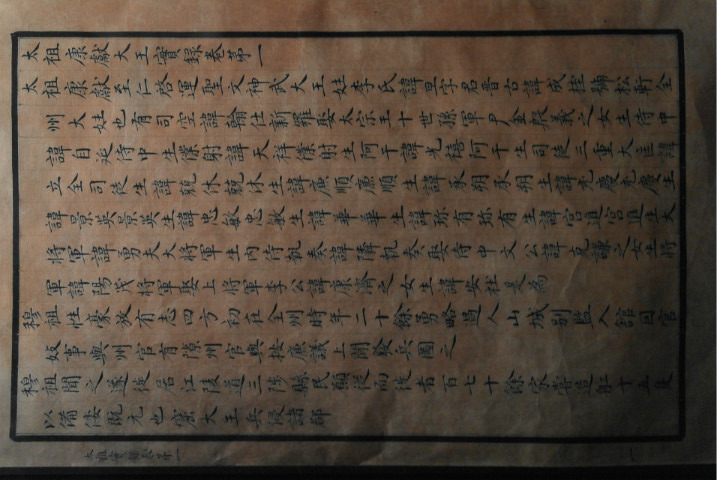 太祖康獻大王實錄卷第一
太祖康獻至仁啓運聖文神武大王姓李氏諱旦字君晉古諱成桂號松軒全
州大姓也有司空諱翰仕新羅娶太宗王十世孫軍尹金殷義之女生侍中
諱自延侍中生僕射諱天祥僕射生阿干諱光禧阿干生司徒三重大匡諱
立全司徒生諱兢休兢休生諱廉順廉順生諱承朔承朔生諱充慶充慶生
諱景英景英生諱忠敏忠敏生諱華華生諱珍有珍有生諱宮進宮進生大
將軍諱勇夫大將軍生內侍執奏諱隣執奏娶侍中文公諱克謙之女生將
軍諱陽茂將軍娶上將軍李公諱康濟之女生諱安社是爲
穆祖性豪放有志四方初在全州時年二十餘勇略過人山城別監入館因官
妓事與州官有隙州官與按廉議上聞發兵圖之
穆祖聞之遂徙居江陵道三陟縣民願從而徙者百七十餘家嘗造船十五隻
以備倭旣元也窟大王兵侵諸郡